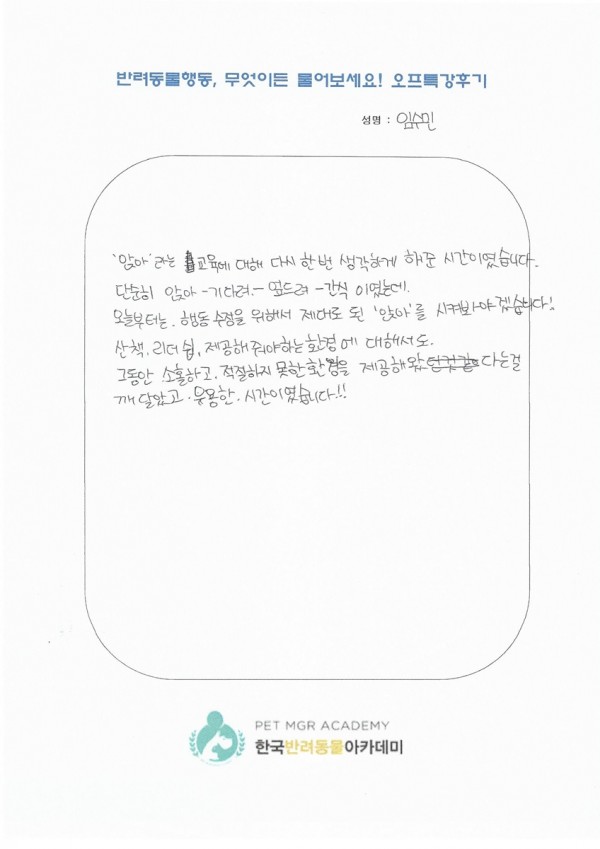 반려동물행동, 무엇이든 물어보세요! 오프특강후기
성명 : 임수민
'앉아'라는 교육에 대해 다시 한번 생각하게 해준 시간이였습니다.
단순히 앉아 -기다려.- 엎드려 -간식 이였는데.
오늘부터는. 행동 수정을 위해서 제대로 된 '앉아'를 시켜봐야겠습니다!
산책. 리더쉽, 제공해줘야하는 환경에 대해서도.
그동안 소홀하고. 적절하지 못한 환경을 제공해왔다는걸
깨달았고. 유용한. 시간이였습니다!!
PET MGR ACADEMY
한국반려동물아카데미